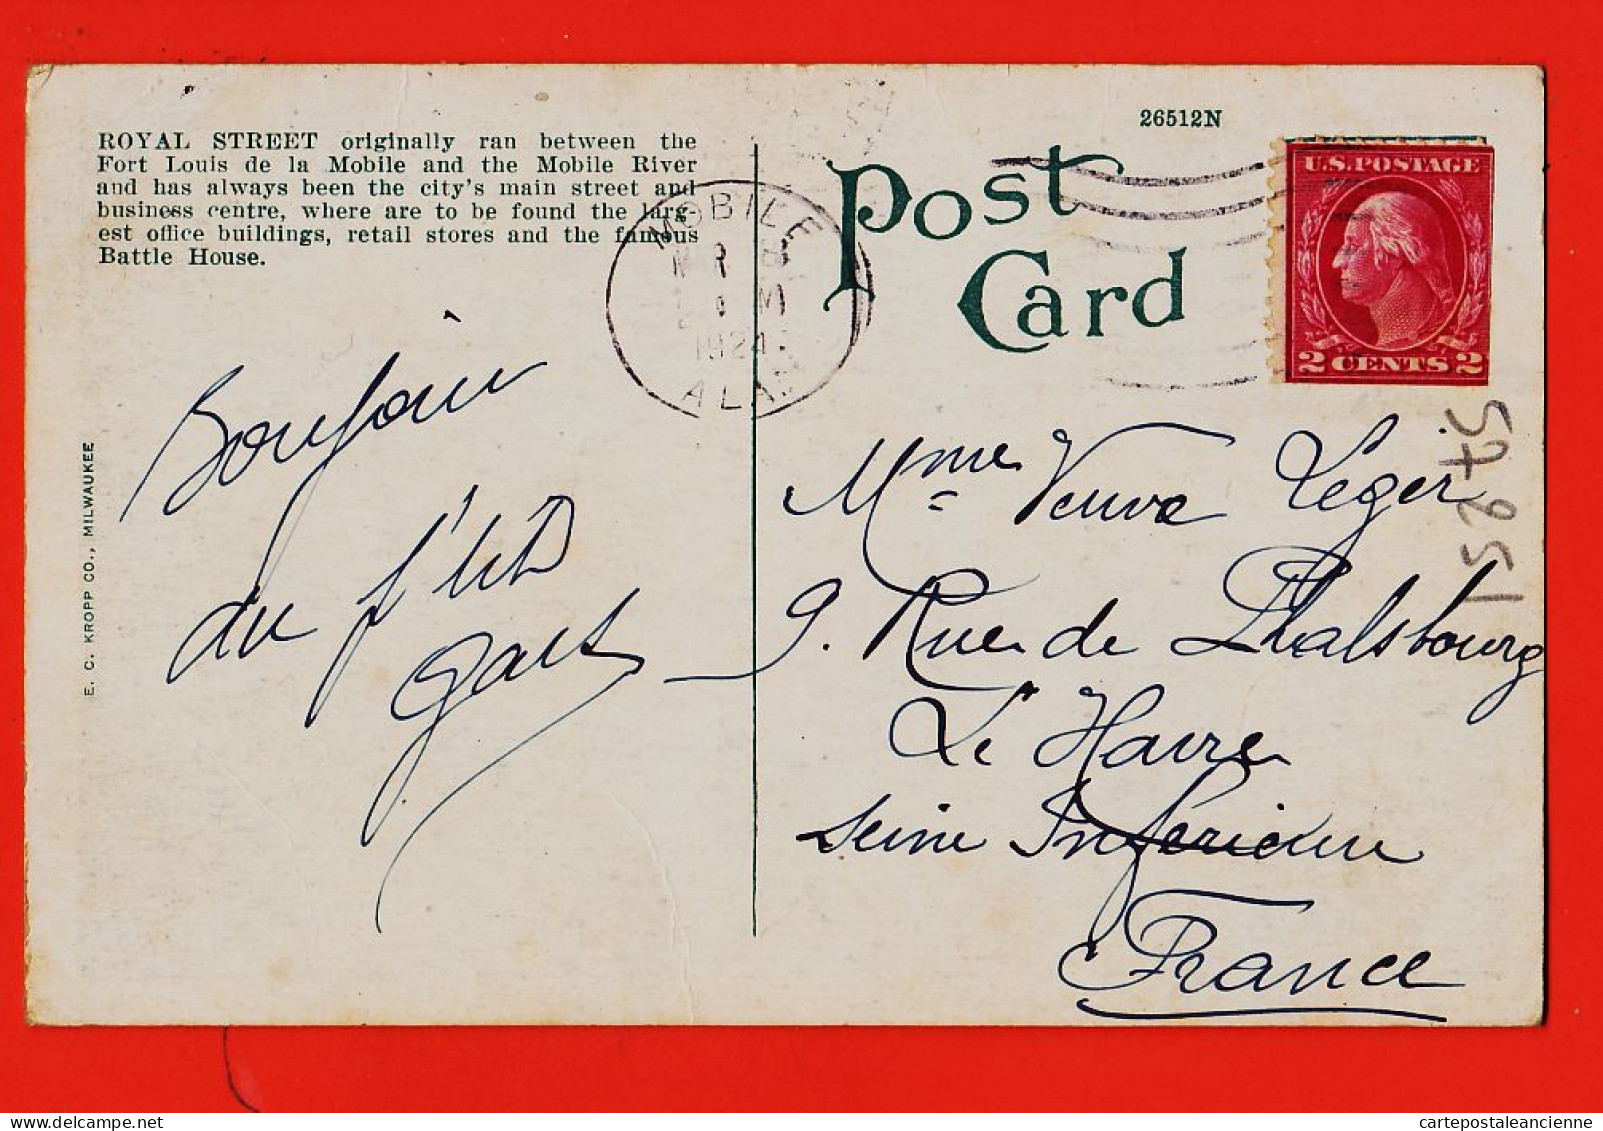 26512N
ROYAL STREET originally ran between the
Fort Louis de la Mobile and the Mobile River
and has always been the city's main street and
business centre, where are to be found the larg-
est office buildings, retail stores and the famous
Battle House.
Post
Card
U.S. POSTAGE
2 CENTS 2
MOBILE
1924
ALA.
E. C. KROPP CO., MILWAUKEE
Bonjour
du p'tit
Mme Veuve Léger
9. Rue de Phalsbourg
Le Havre
Seine Inférieure
France
cartepostaleancienne
www.delcampe.net